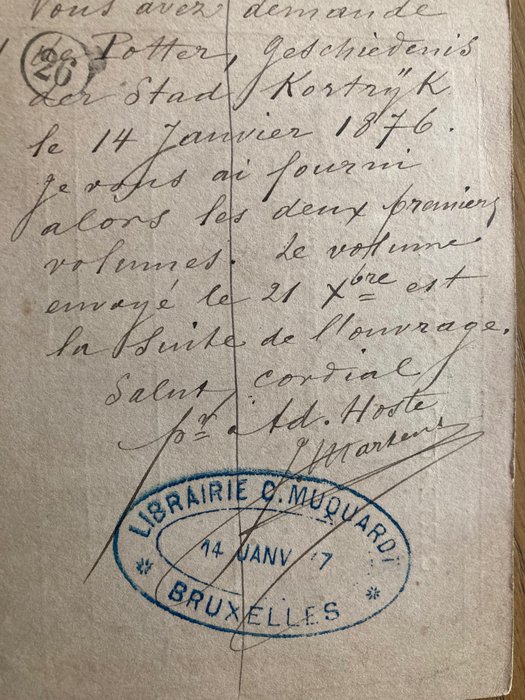 Vous avez demandé
Potter, Geschiedenis
26
der Stad Kortrÿk
le 14 Janvier 1876.
je vous ai fourni
alors les deux premiers
volumes. Le volume
envoyé le 21 Xbre est
la suite de l'ouvrage.
Salut cordial
pr Ad. Hoste
J Martens
LIBRAIRIE C. MUQUARDT
14 JANV 7
BRUXELLES